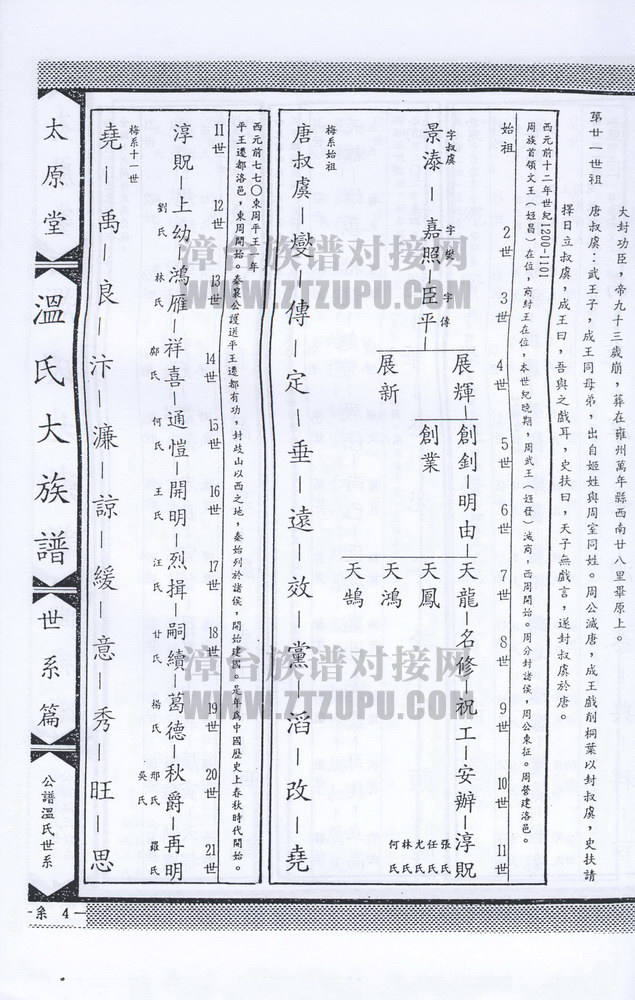 大封功臣，帝九十三歲崩，葬在雍州萬年縣西南廿八里畢原上。
第廿一世祖　唐叔虞：武王子，成王同母弟，出自姬姓與周室同姓。周公滅唐，成王戲削桐葉以封叔虞，史扶請
擇日立叔虞，成王曰，吾與之戲耳，史扶曰，天子無戲言，遂封叔虞於唐。
始祖　2世　3世　4世　5世　6世　7世　8世　9世　10世　11世
西元前十二年世紀1200-1101
周族首領文王（姬昌）在位，商紂王在位，本世紀晚期，周武王（姬發）滅商，西周開始。周分封諸侯，周公東征。周營建洛邑。
字叔虞　字燮　字傳
景溱－嘉照－臣平－展輝－創釗－明由－天龍－名修－祝工－安辦－淳貺
展新　創業　天鳳
天鴻
天鵠
張氏
任氏
尤氏
林氏
何氏
梅系始祖
唐叔虞－燮－傳－定－垂－遠－效－黨－滔－改－堯
西元前七七〇東周平王元年
平王遷都洛邑，東周開始。秦襄公護送平王遷都有功，封歧山以西之地，秦始列於諸侯，開始建國。是年為中國歷史上春秋時代開始。
11世　12世　13世　14世　15世　16世　17世　18世　19世　20世　21世
淳貺－上幼－鴻雁－祥喜－通愷－開明－烈揖－嗣續－葛德－秋爵－再明
劉氏　林氏　鄭氏　何氏　王氏　汪氏　甘氏　楊氏　邢氏　吳氏　羅氏
梅系十一世
堯－禹－良－汴－濂－諒－緩－意－秀－旺－思
太原堂
溫氏大族譜
世系篇
公譜溫氏世系
系 4
漳台族谱对接网
WWW.ZTZUPU.COM
漳台族谱对接网
WWW.ZTZUPU.COM